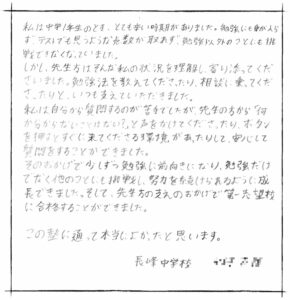 私は中学1年生のとき、とても辛い時期がありました。勉強にも身が入ら
ず、テストでも思うような点数が取れず、勉強以外のことにも挑
戦できなくなっていました。
しかし、先生方はそんな私の状況を理解し、寄り添ってくだ
さいました。勉強法を教えてくださったり、相談に乗ってくだ
さったりと、いつも支えていただきました。
私は自分から質問するのが苦手でしたが、先生の方から「何
か分からないところはない?」と声をかけてくださったり、ボタン
を押すとすぐに来てくださる環境があったりして、安心して
質問をすることができました。
そのおかげで少しずつ勉強に前向きになり、勉強だけ
でなく他のことにも挑戦し、努力を続けられるように成
長できました。そして、先生方の支えのおかげで第一志望校
に合格することができました。
この塾に通って本当によかったと思います。
長峰中学校